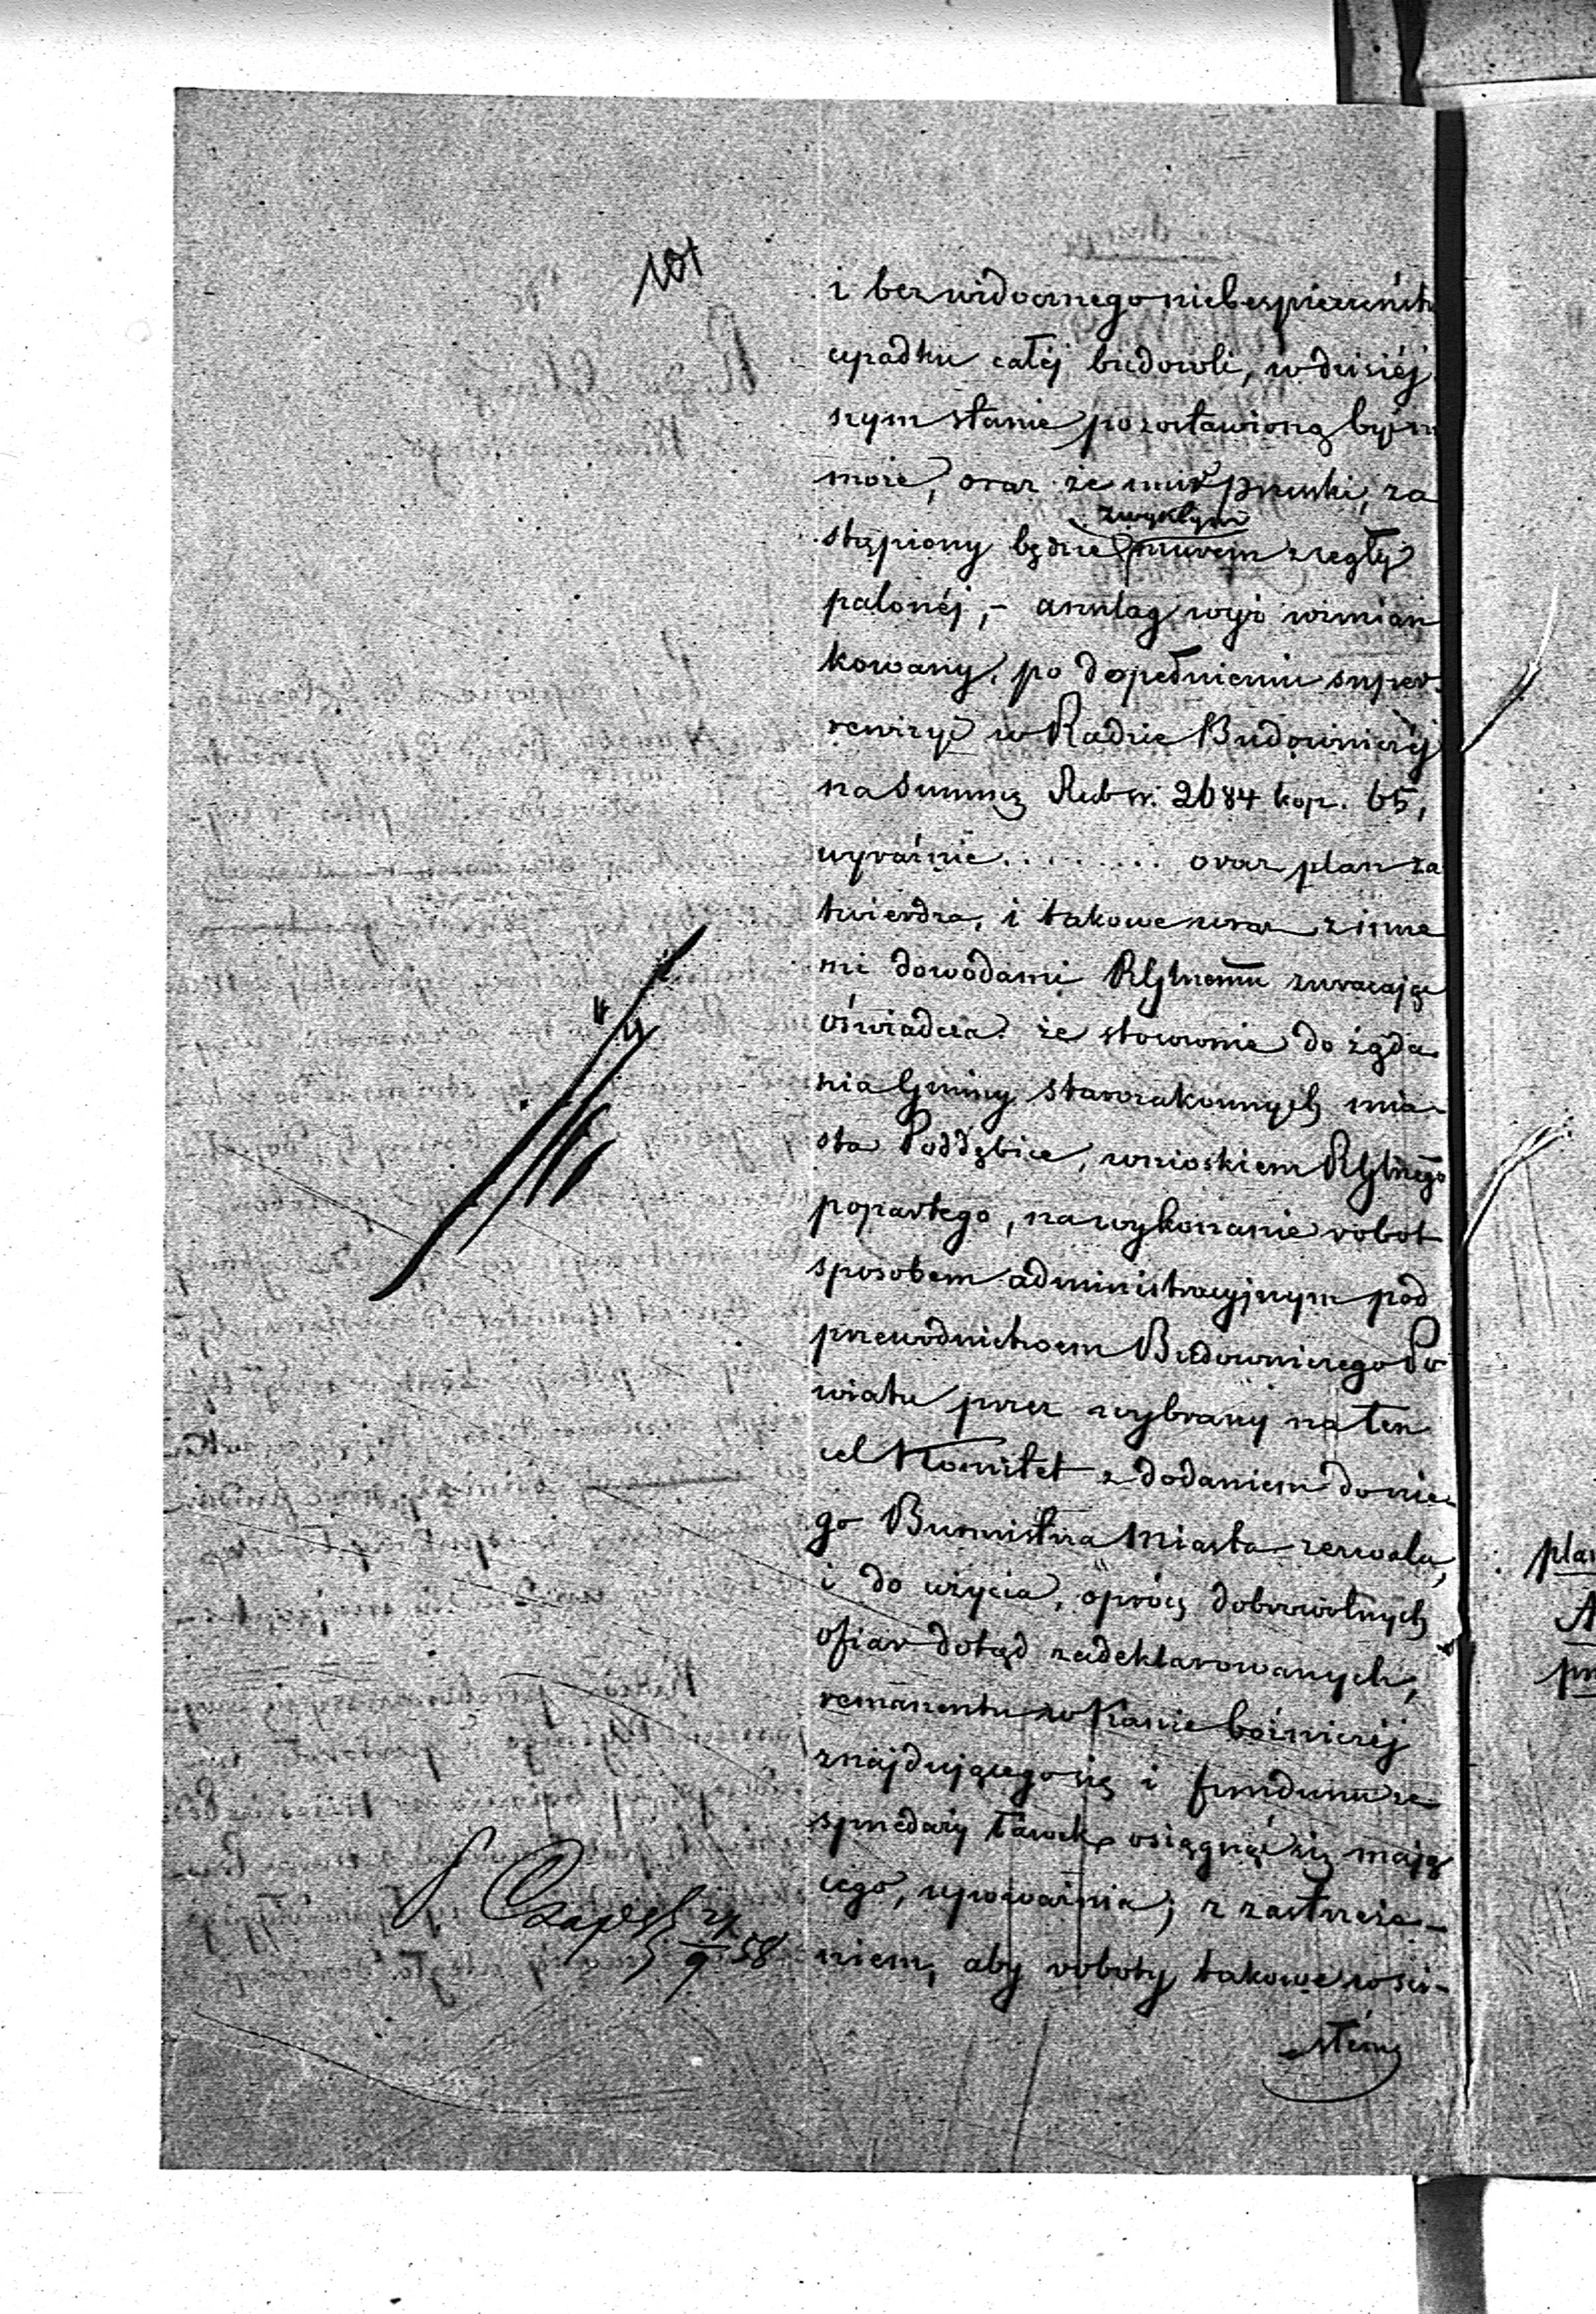 101
i bez widocznego niebezpieczeństw
upadku całéj budowli, w dzisiéj
szym stanie pozostawioną być n
może, oraz że mur pruski, za
zwykłym
stąpiony będzie murem z cegły
palonéj, - anszlag wyż wzmian
kowany, po dopełnieniu super-
rewizyi w Radzie Budowniczéj
na summę Rub sr. 2684 kop. 65,
wyraźnie ........ oraz plan za
twierdza, i takowe wraz z inne
mi dowodami RGlnemu zwracając
oświadcza że stosownie do żąda
nia Gminy starozakonnych mia-
sta Poddębice, wnioskiem RGlnego
popartego, na wykonanie robot
sposobem administracyjnym pod
przewodnictwem Budowniczego Po
wiatu przez wybrany na ten
cel Komitet z dodaniem do nie-
go Burmistrza Miasta zezwala,
i do użycia, oprócz dobrowolnych
ofiar dotąd zadeklarowanych,
remanentu w Kassie bóżniczéj
znajdującego się i funduszu ze
sprzedaży ławek osiągnąć się mają
cego, upoważnia; z zastrzeże-
niem, aby roboty takowe w sci-
słém
9 58
pla
A